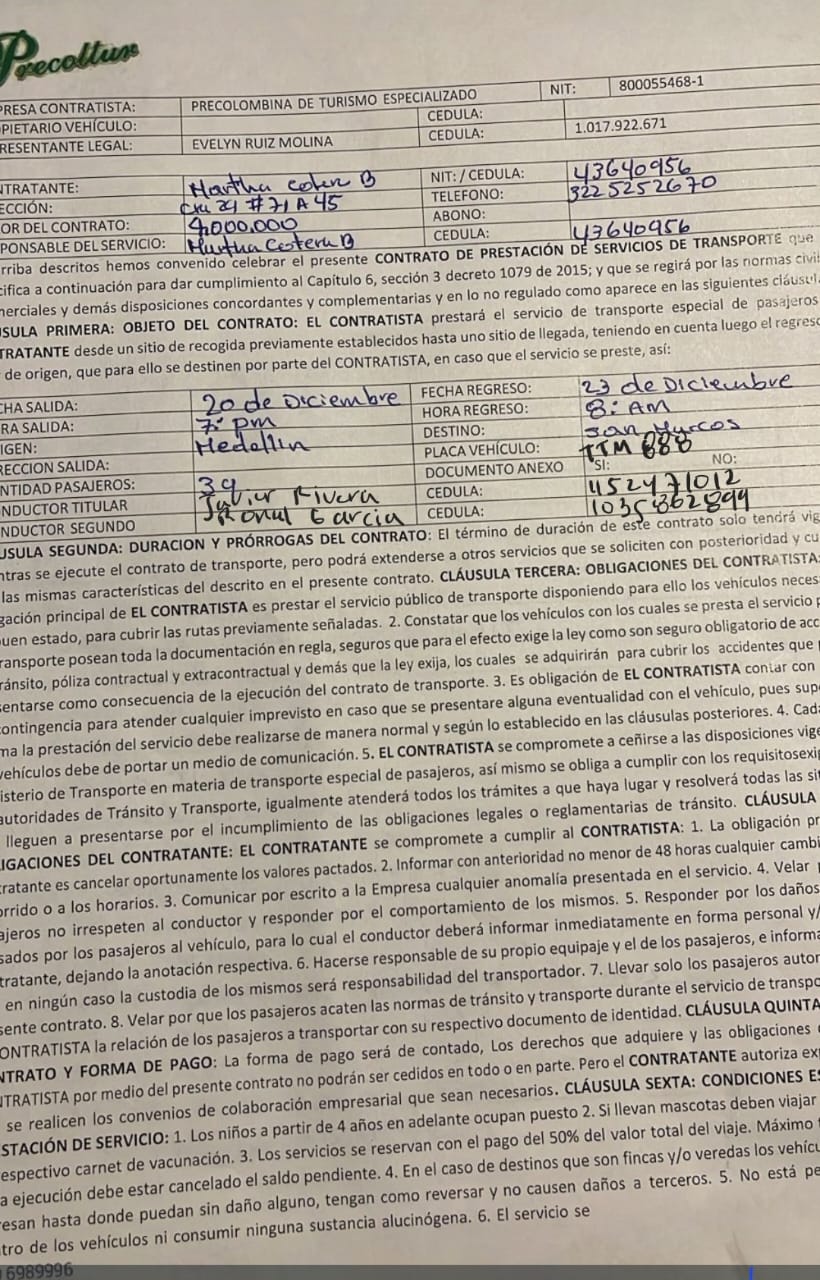 Precoltur
PRESA CONTRATISTA: PRECOLOMBINA DE TURISMO ESPECIALIZADO NIT: 800055468-1
PIETARIO VEHÍCULO: CEDULA:
RESENTANTE LEGAL: EVELYN RUIZ MOLINA CEDULA: 1.017.922.671
NTRATANTE: Martha Cotera B NIT: / CEDULA: 43640956
ECCIÓN: Cra 24 # 71 A 45 TELEFONO: 3225252670
OR DEL CONTRATO: 4,000.000 ABONO:
PONSABLE DEL SERVICIO: Martha Cotera B CEDULA: 43640956
rriba descritos hemos convenido celebrar el presente CONTRATO DE PRESTACIÓN DE SERVICIOS DE TRANSPORTE que
cifica a continuación para dar cumplimiento al Capítulo 6, sección 3 decreto 1079 de 2015; y que se regirá por las normas civi
nerciales y demás disposiciones concordantes y complementarias y en lo no regulado como aparece en las siguientes cláusul
USULA PRIMERA: OBJETO DEL CONTRATO: EL CONTRATISTA prestará el servicio de transporte especial de pasajeros
TRATANTE desde un sitio de recogida previamente establecidos hasta uno sitio de llegada, teniendo en cuenta luego el regreso
de origen, que para ello se destinen por parte del CONTRATISTA, en caso que el servicio se preste, así:
CHA SALIDA: 20 de Diciembre FECHA REGRESO: 23 de Diciembre
RA SALIDA: 7: pm HORA REGRESO: 8: AM
IGEN: Medallin DESTINO: San Marcos
RECCION SALIDA: PLACA VEHÍCULO: TTM 888
NTIDAD PASAJEROS: 39 DOCUMENTO ANEXO SI: NO:
NDUCTOR TITULAR Javier Rivera CEDULA:
NDUCTOR SEGUNDO Garcia CEDULA:
USULA SEGUNDA: DURACION Y PRÓRROGAS DEL CONTRATO: El término de duración de este contrato solo tendrá vig
ntras se ejecute el contrato de transporte, pero podrá extenderse a otros servicios que se soliciten con posterioridad y cu
las mismas características del descrito en el presente contrato. CLÁUSULA TERCERA: OBLIGACIONES DEL CONTRATISTA:
gación principal de EL CONTRATISTA es prestar el servicio público de transporte disponiendo para ello los vehículos neces
uen estado, para cubrir las rutas previamente señaladas. 2. Constatar que los vehículos con los cuales se presta el servicio p
ransporte posean toda la documentación en regla, seguros que para el efecto exige la ley como son seguro obligatorio de acc
ránsito, póliza contractual y extracontractual y demás que la ley exija, los cuales se adquirirán para cubrir los accidentes que
sentarse como consecuencia de la ejecución del contrato de transporte. 3. Es obligación de EL CONTRATISTA contar con
contingencia para atender cualquier imprevisto en caso que se presentare alguna eventualidad con el vehículo, pues sup
ma la prestación del servicio debe realizarse de manera normal y según lo establecido en las cláusulas posteriores. 4. Cad
vehículos debe de portar un medio de comunicación. 5. EL CONTRATISTA se compromete a ceñirse a las disposiciones vige
isterio de Transporte en materia de transporte especial de pasajeros, así mismo se obliga a cumplir con los requisitosexi
autoridades de Tránsito y Transporte, igualmente atenderá todos los trámites a que haya lugar y resolverá todas las si
lleguen a presentarse por el incumplimiento de las obligaciones legales o reglamentarias de tránsito. CLÁUSULA
LIGACIONES DEL CONTRATANTE: EL CONTRATANTE se compromete a cumplir al CONTRATISTA: 1. La obligación pr
tratante es cancelar oportunamente los valores pactados. 2. Informar con anterioridad no menor de 48 horas cualquier cambi
orrido o a los horarios. 3. Comunicar por escrito a la Empresa cualquier anomalía presentada en el servicio. 4. Velar
ajeros no irrespeten al conductor y responder por el comportamiento de los mismos. 5. Responder por los daños
sados por los pasajeros al vehículo, para lo cual el conductor deberá informar inmediatamente en forma personal y/
tratante, dejando la anotación respectiva. 6. Hacerse responsable de su propio equipaje y el de los pasajeros, e informa
en ningún caso la custodia de los mismos será responsabilidad del transportador. 7. Llevar solo los pasajeros autor
sente contrato. 8. Velar por que los pasajeros acaten las normas de tránsito y transporte durante el servicio de transpo
ONTRATISTA la relación de los pasajeros a transportar con su respectivo documento de identidad. CLÁUSULA QUINTA
NTRATO Y FORMA DE PAGO: La forma de pago será de contado, Los derechos que adquiere y las obligaciones
NTRATISTA por medio del presente contrato no podrán ser cedidos en todo o en parte. Pero el CONTRATANTE autoriza ex
se realicen los convenios de colaboración empresarial que sean necesarios. CLÁUSULA SEXTA: CONDICIONES ES
STACIÓN DE SERVICIO: 1. Los niños a partir de 4 años en adelante ocupan puesto 2. Si llevan mascotas deben viajar
espectivo carnet de vacunación. 3. Los servicios se reservan con el pago del 50% del valor total del viaje. Máximo
a ejecución debe estar cancelado el saldo pendiente. 4. En el caso de destinos que son fincas y/o veredas los vehícu
resan hasta donde puedan sin daño alguno, tengan como reversar y no causen daños a terceros. 5. No está pe
tro de los vehículos ni consumir ninguna sustancia alucinógena. 6. El servicio se
6989996